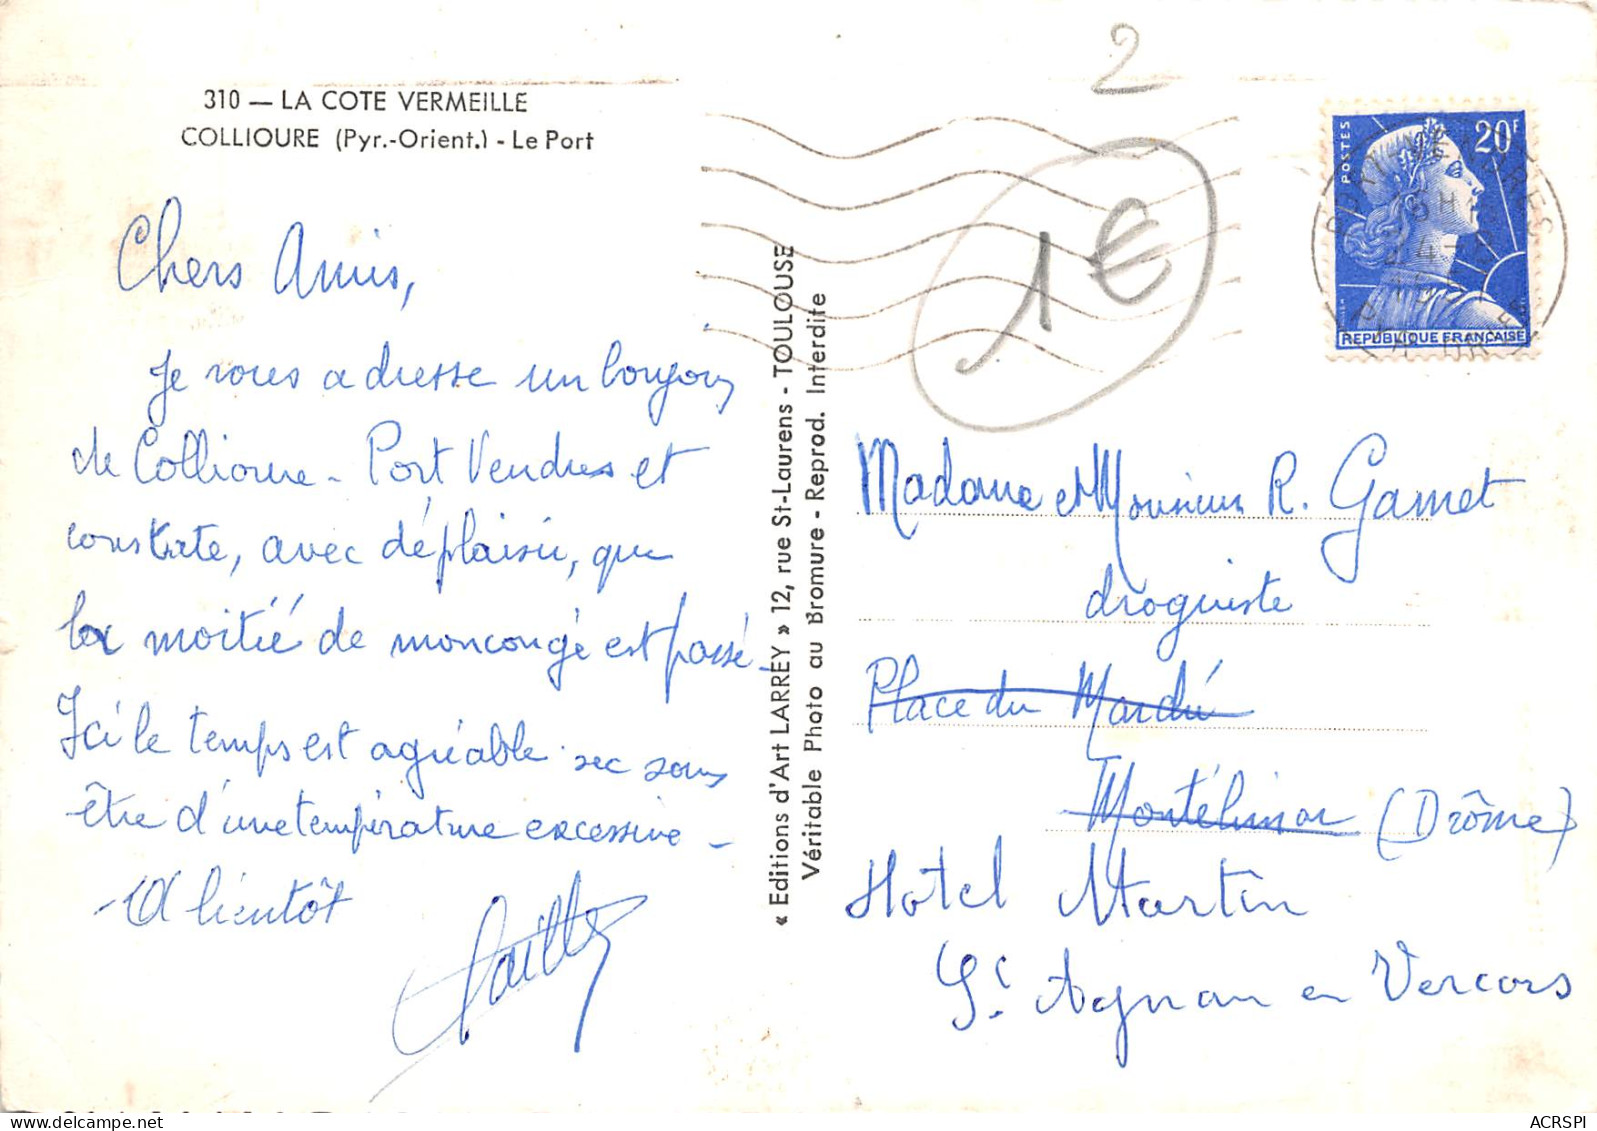 310 — LA COTE VERMEILLE
COLLIOURE (Pyr.-Orient.) - Le Port
Chers Amis,
Je vous adresse un bonjour
de Collioure - Port Vendres et
constate, avec déplaisir, que
la moitié de mon congé est passé -
Ici le temps est agréable sec sans
être d'une température excessive -
- A bientôt
« Editions d'Art LARREY » 12, rue St-Laurens - TOULOUSE
Véritable Photo au Bromure - Reprod. Interdite
2
1 €
POSTES
20F
REPUBLIQUE FRANÇAISE
Madame et Monsieur R. Gamet
droguiste
Place du Marché
Montélimar (Drôme)
Hôtel Martin
St Agnan en Vercors
ACRSPI